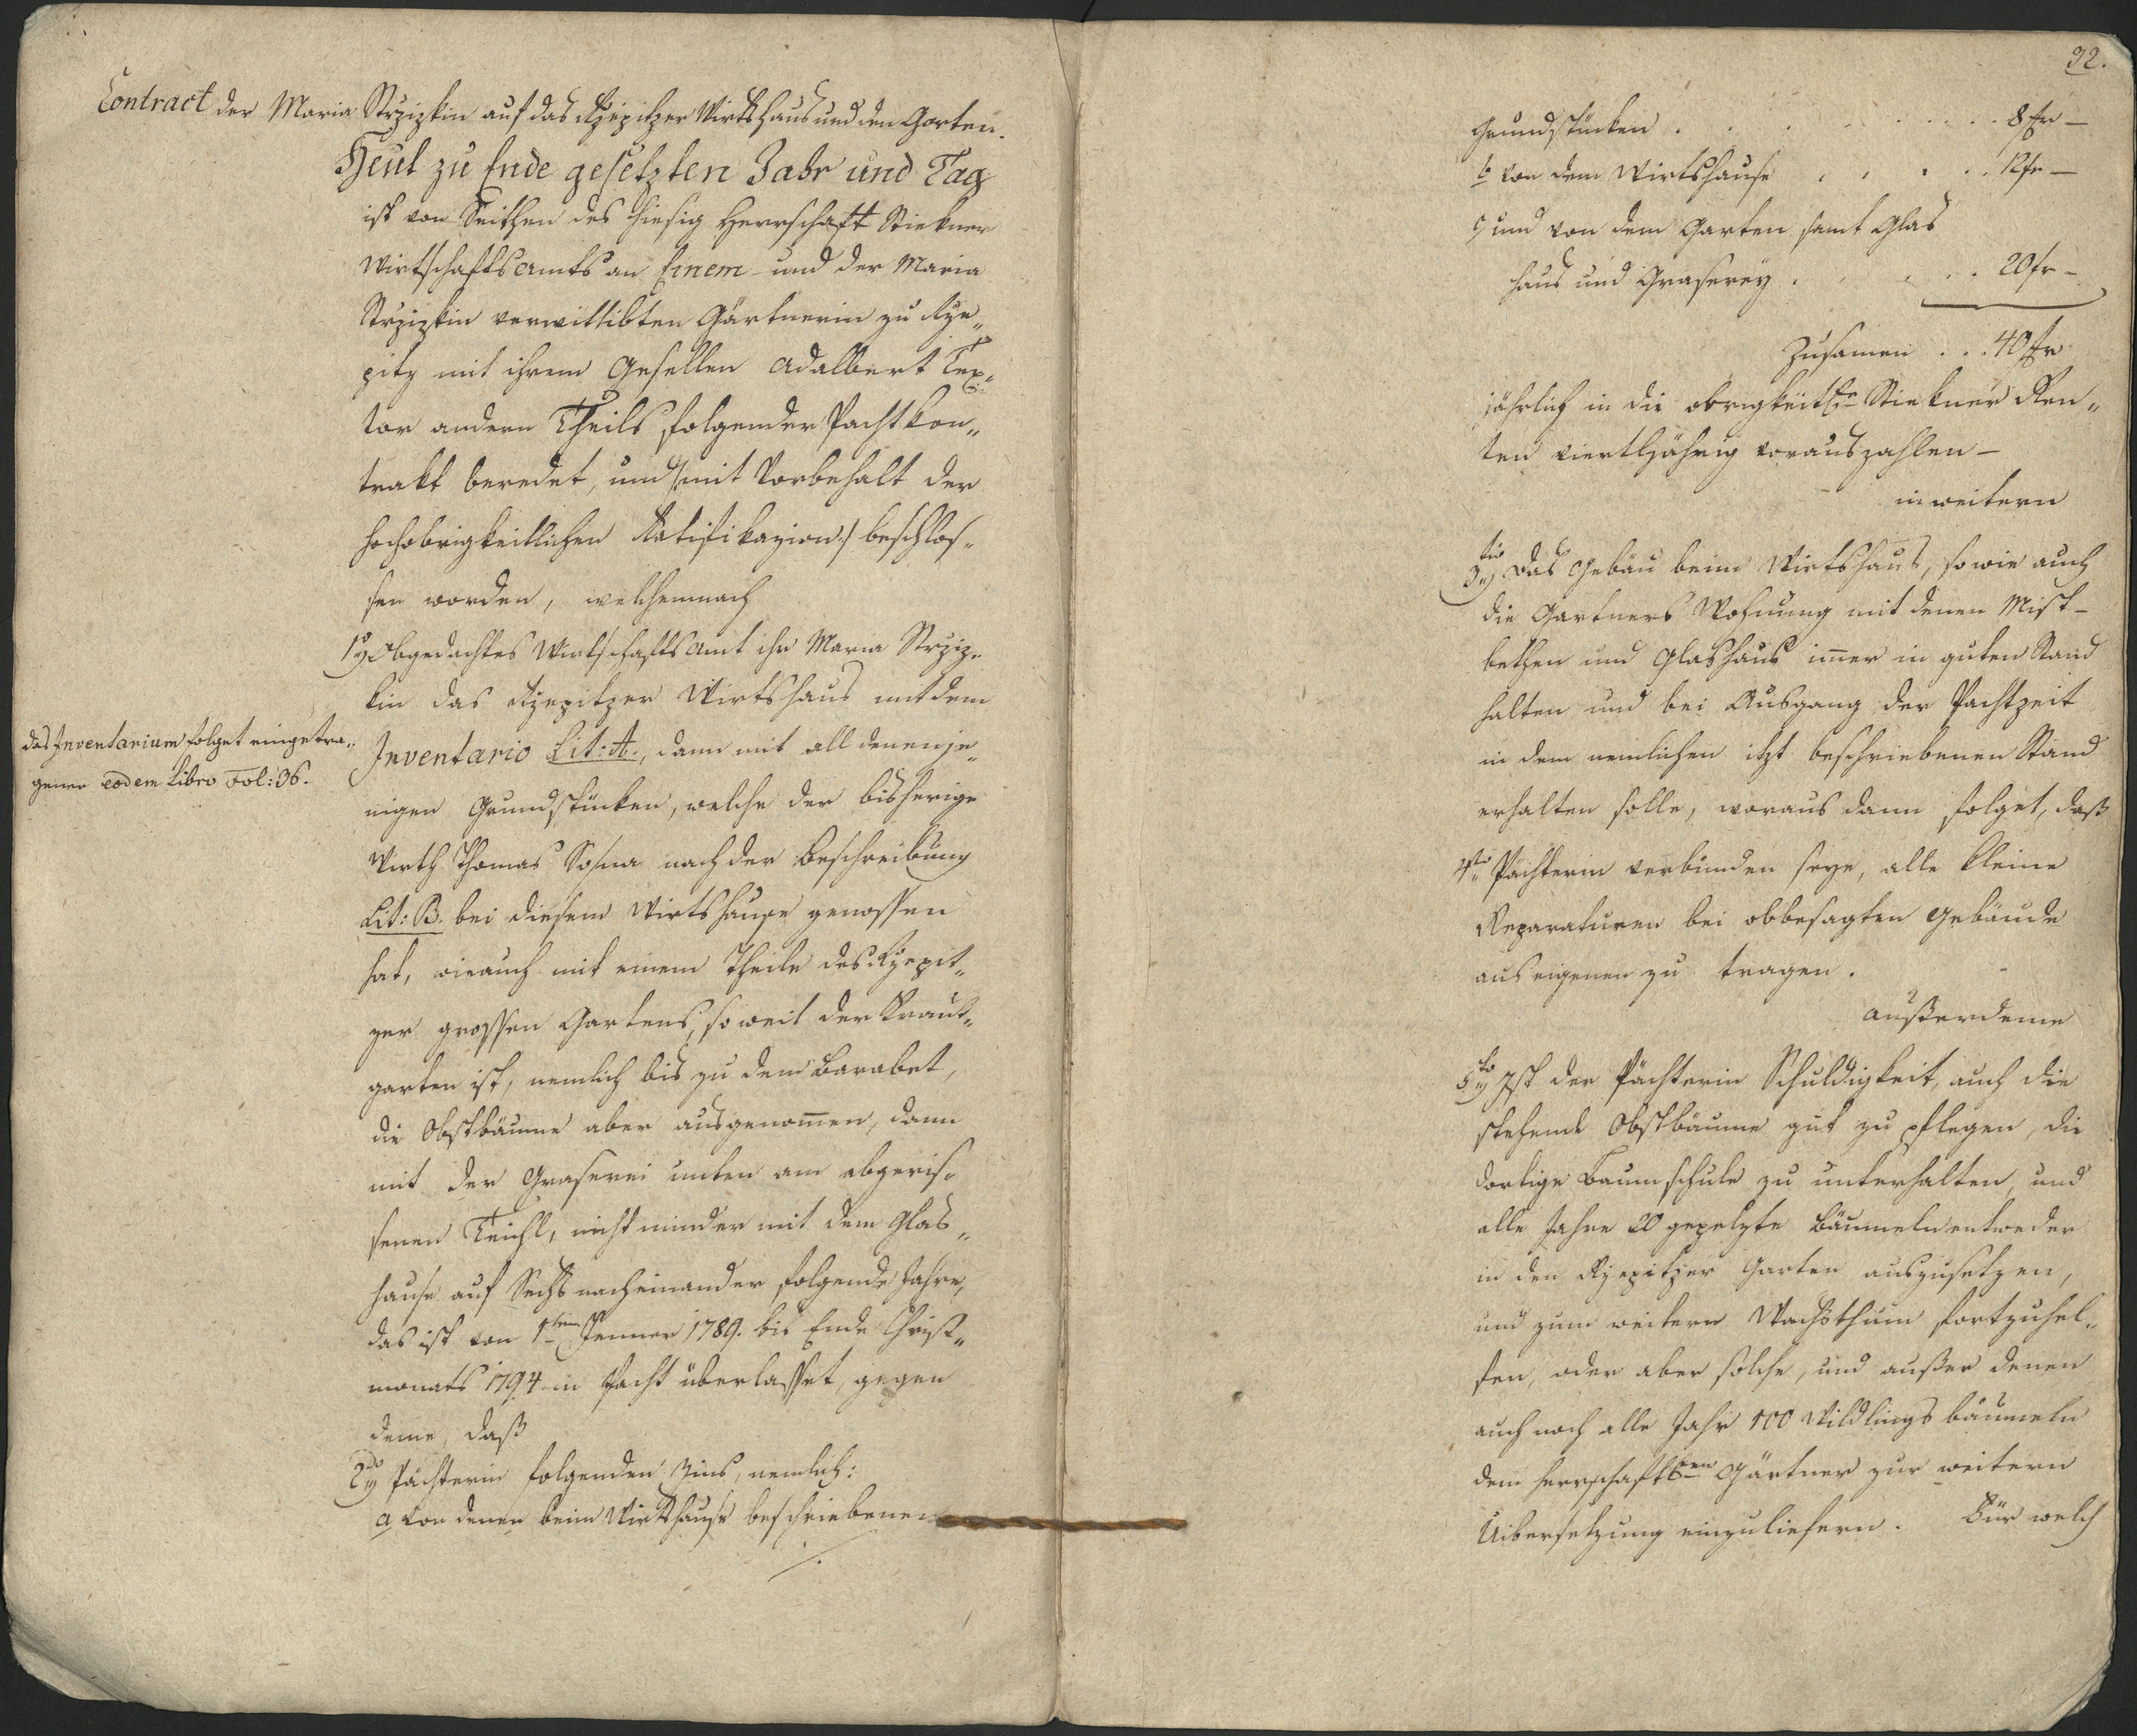 Contract der Maria Strzizkin auf das Rzepitzer Wirtshaus und den Garten.
Heut zu Ende gesetzten Jahr und Tag
ist von Seithen des hiesig Herrschaft Stiekner
Wirtschaftsamts an Einem- und der Maria
Strzizkin verwittibten Gärtnerin zu Rze„
pitz mit ihrem Gesellen Adalbert Tex„
tor andern Theils folgender Pachtkon„
trakt beredet, und /:mit Vorbehalt der
hochobrigkeitlichen Ratifikazion:/ beschlos„
sen worden, welchemnach
1o Obgedachtes Wirtschaftsamt ihr Maria Strziz„
kin das Rzepitzer Wirtshaus mit dem
das Inventarium folget eingetra„
gener eodem Libro Fol: 36.
Inventario Lit: A., dann mit all denenje„
nigen Grundstücken, welche der bisherige
Wirth Thomas Sosna nach der Beschreibung
Lit: B. bei diesem Wirtshause genossen
hat, wie auch mit einem Theile des Rzepit„
zer grossen Gartens, so weit der Kraut„
garten ist, nemlich bis zu dem Barabet,
die Obstbäume aber ausgenom̅en, dann
mit der Graserei unten am abgeris„
senen Teichl, nicht minder mit dem Glas„
hause auf Sechs nacheinander folgende Jahre,
das ist von 1ten Jenner 1789. bis Ende Christ„
monats 1794 in Pacht überlasset, gegen
deme, daß
2do Pächterin folgenden Zins, nemlich:
a von denen beim Wirtshause beschriebenen
./.
32.
Grundstücken . . . . . . . 8 fr —
b von dem Wirtshause . . . . 12 fr —
c, und von dem Garten samt Glas
haus und Graserey . . . . . 20 fr —
Zusamen . . . 40 fr
jährlich in die obrigkeitle Stiekner Ren„
ten viertljährig vorauszahlen —
in weitern
3tio das Gebäu beim Wirtshaus, so wie auch
die Gartners Wohnung mit denen Mist-
bethen und Glashaus im̅er in guten Stand
halten und bei Ausgang der Pachtzeit
in dem nemlichen itzt beschriebenen Stand
erhalten solle, woraus dann folget, daß
4to Pächterin verbunden seye, alle kleine
Reparaturen bei obbesagten Gebäude
aus eigenen zu tragen.
Außerdeme
5to Ist der Pächterin Schuldigkeit, auch die
stehende Obstbäume gut zu pflegen, die
dortige Baumschule zu unterhalten, und
alle Jahre 20 gepelzte Bäumeln entweder
in den Rzepitzer Garten auszusetzen,
und zum weitern Wachsthum fortzuhel„
fen, oder aber solche, und außer denen
auch noch alle Jahr 100 Wildlings bäumeln
dem herrschaftlen Gärtner zur weitern
Uibersetzung einzuliefern. Für welch